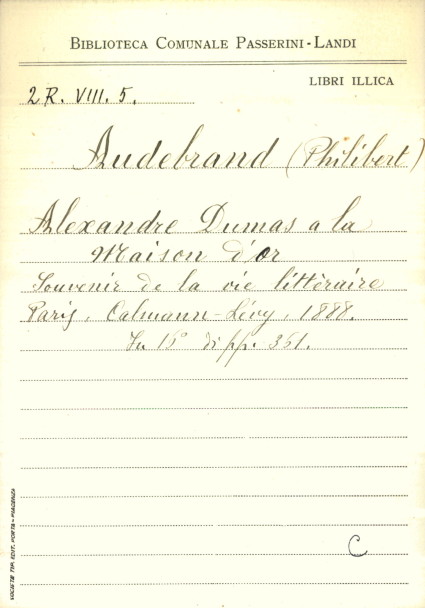 BIBLIOTECA COMUNALE PASSERINI-LANDI
LIBRI ILLICA
2R. VIII. 5.
Audebrand (Philibert)
Alexandre Dumas a la
Maison d'or
Souvenir de la vie littéraire
Paris, Calmann-Lévy, 1888.
In 16° di pp. 361.
C
SOCIETÀ TIP. EDIT. PORTA - PIACENZA